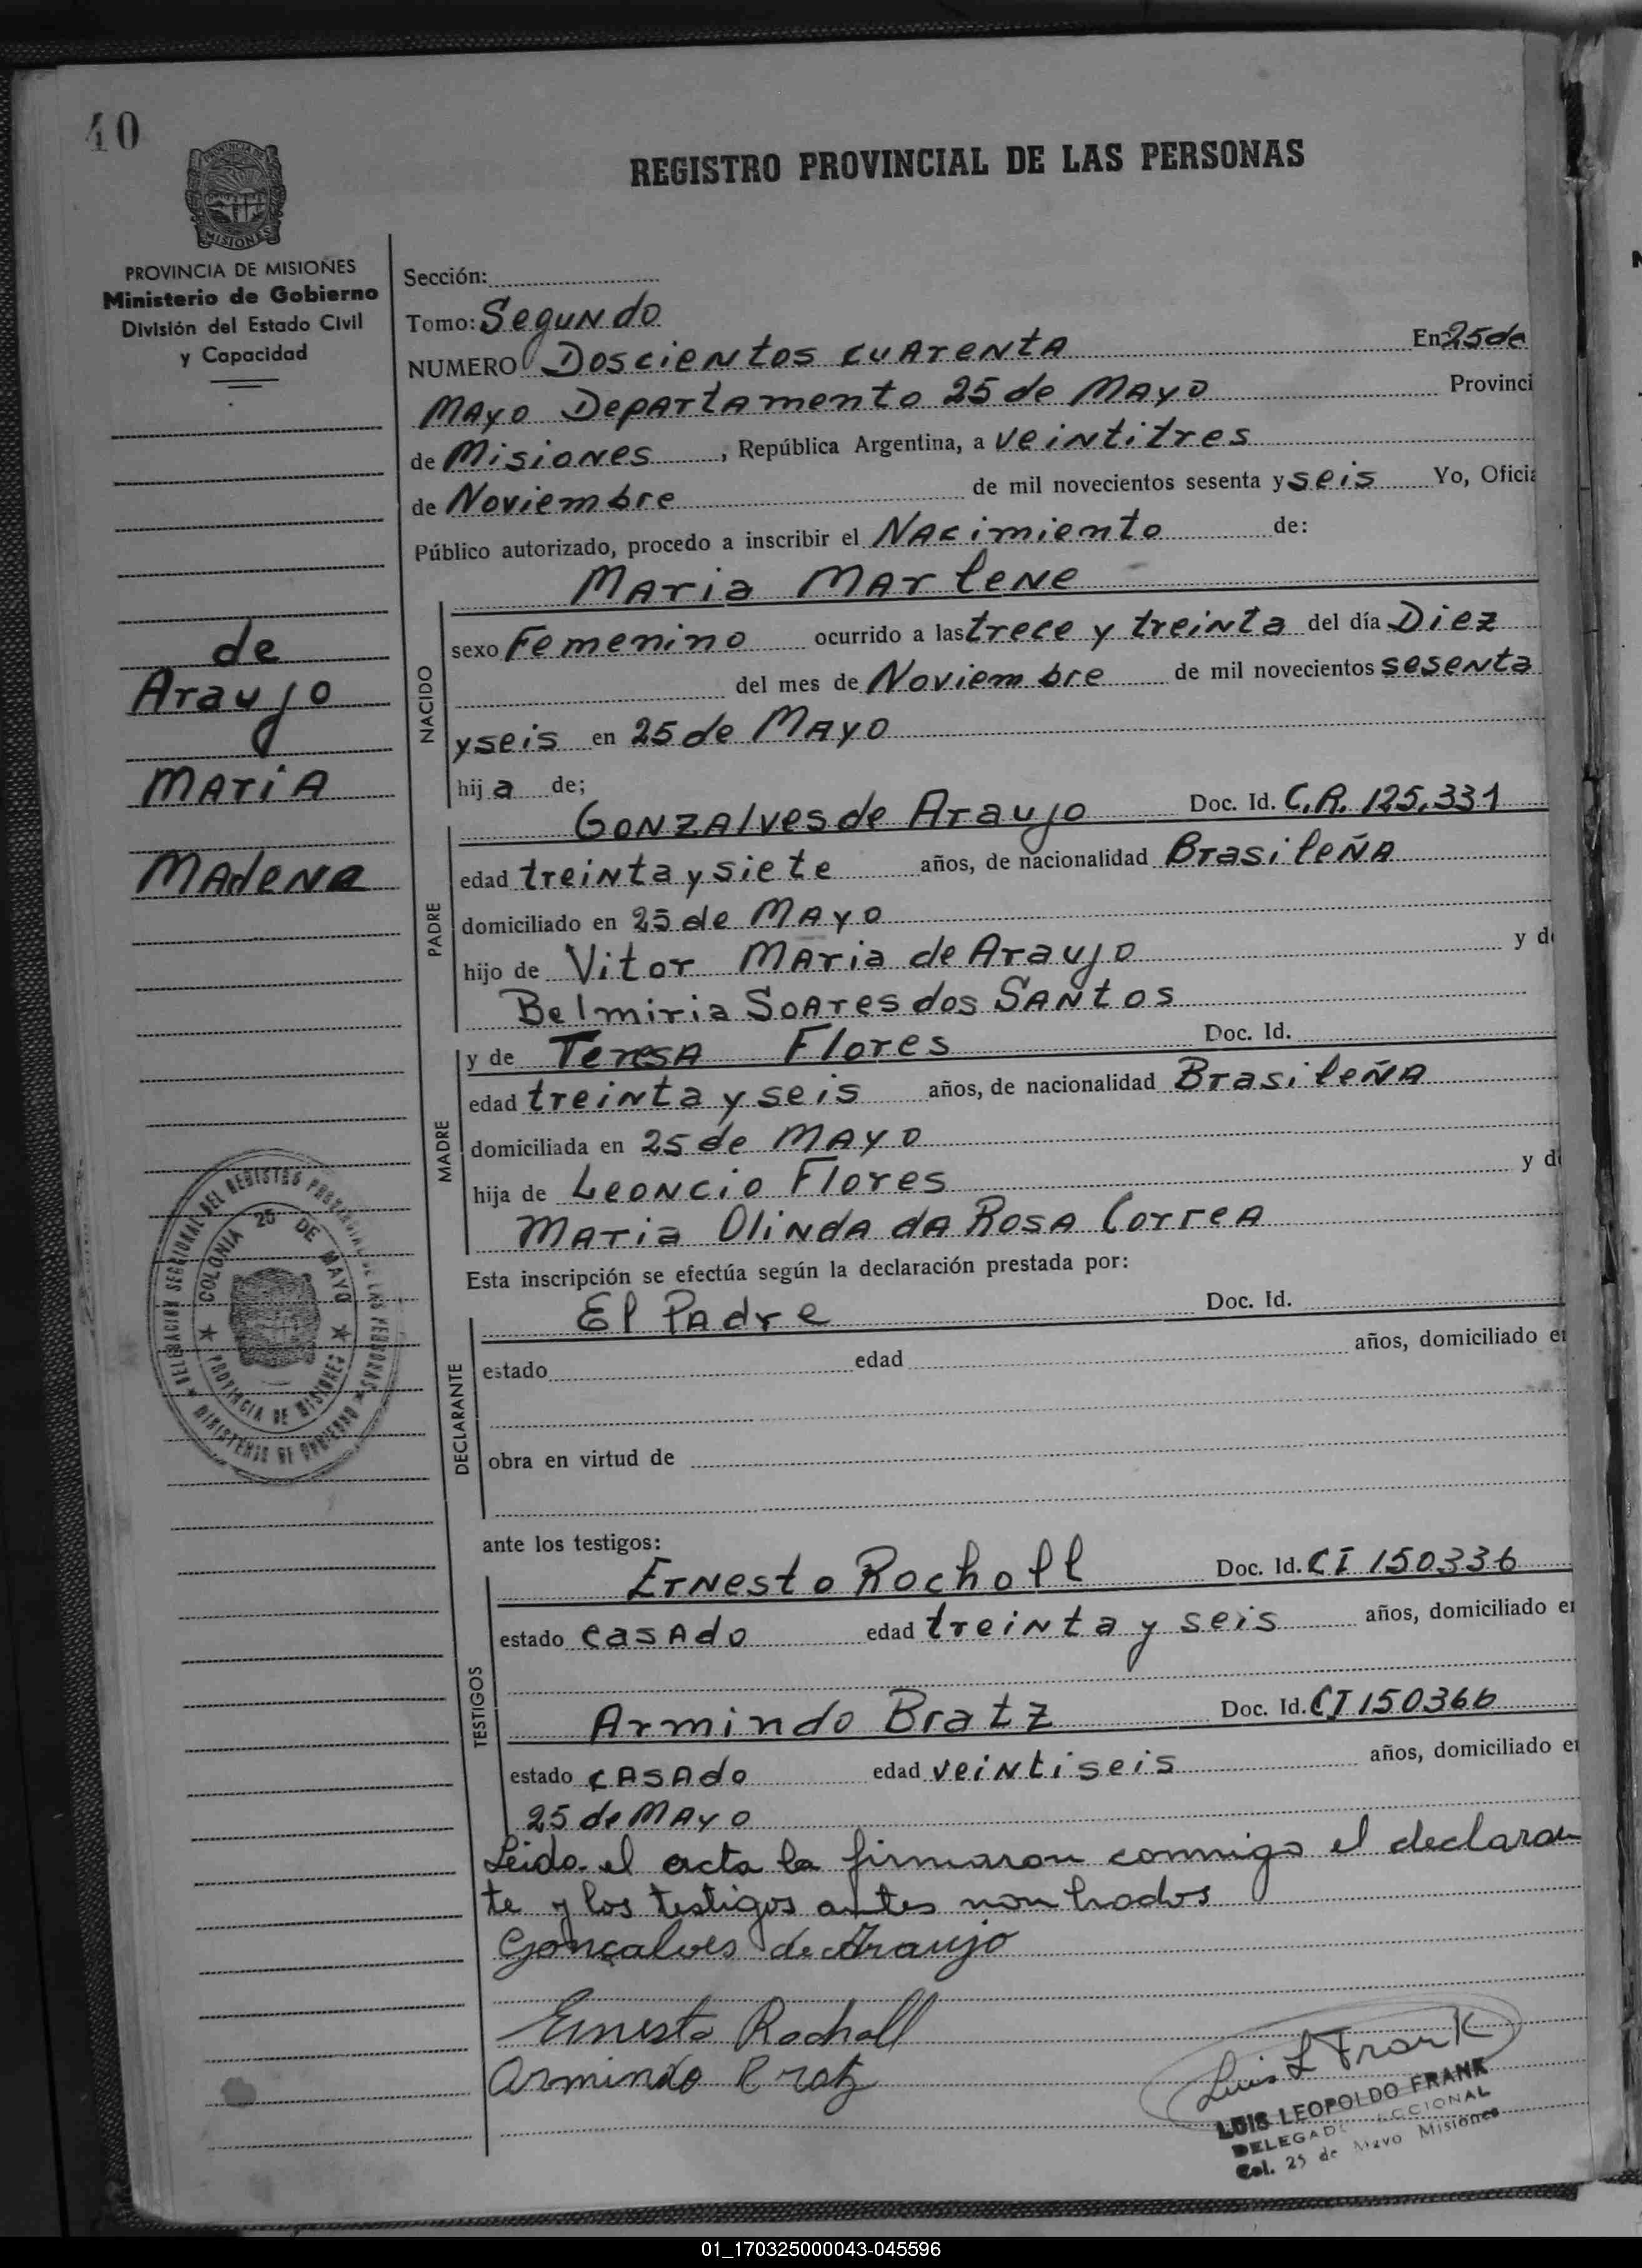 40
REGISTRO PROVINCIAL DE LAS PERSONAS
PROVINCIA DE MISIONES
MISIONES
PROVINCIA DE MISIONES
Ministerio de Gobierno
División del Estado Civil
y Capacidad
de
Araujo
MARIA
MARLENE
DELEGACION SECCIONAL DEL REGISTRO PROVINCIAL DE LAS PERSONAS
MINISTERIO DE GOBIERNO
COLONIA 25 DE MAYO
PROVINCIA DE MISIONES
Sección:
Tomo: Segundo
NUMERO Doscientos cuarenta En 25 de
Mayo Departamento 25 de Mayo Provinci
de Misiones, República Argentina, a veintitres
de Noviembre de mil novecientos sesenta y seis Yo, Oficia
Público autorizado, procedo a inscribir el Nacimiento de:
NACIDO
Maria Marlene
sexo Femenino ocurrido a las trece y treinta del día Diez
del mes de Noviembre de mil novecientos sesenta
y seis en 25 de Mayo
hija de;
PADRE
Gonzalves de Araujo Doc. Id. C.R. 125.331
edad treinta y siete años, de nacionalidad Brasileña
domiciliado en 25 de Mayo
hijo de Vitor Maria de Araujo y de
Belmiria Soares dos Santos
MADRE
y de Teresa Flores Doc. Id.
edad treinta y seis años, de nacionalidad Brasileña
domiciliada en 25 de Mayo
hija de Leoncio Flores y de
Maria Olinda da Rosa Correa
Esta inscripción se efectúa según la declaración prestada por:
DECLARANTE
El Padre Doc. Id.
estado edad años, domiciliado en
obra en virtud de
ante los testigos:
TESTIGOS
Ernesto Rocholl Doc. Id. CI 150336
estado casado edad treinta y seis años, domiciliado en
Armindo Bratz Doc. Id. CI 150366
estado casado edad veintiseis años, domiciliado en
25 de Mayo
Leido el acta la firmaron conmigo el declaran
te y los testigos antes nombrados
Gonçalves de Araujo
Ernesto Rocholl
Armindo Bratz
Luis L Frank
LUIS LEOPOLDO FRANK
DELEGADO SECCIONAL
Col. 25 de Mayo Misiones
01_170325000043-045596